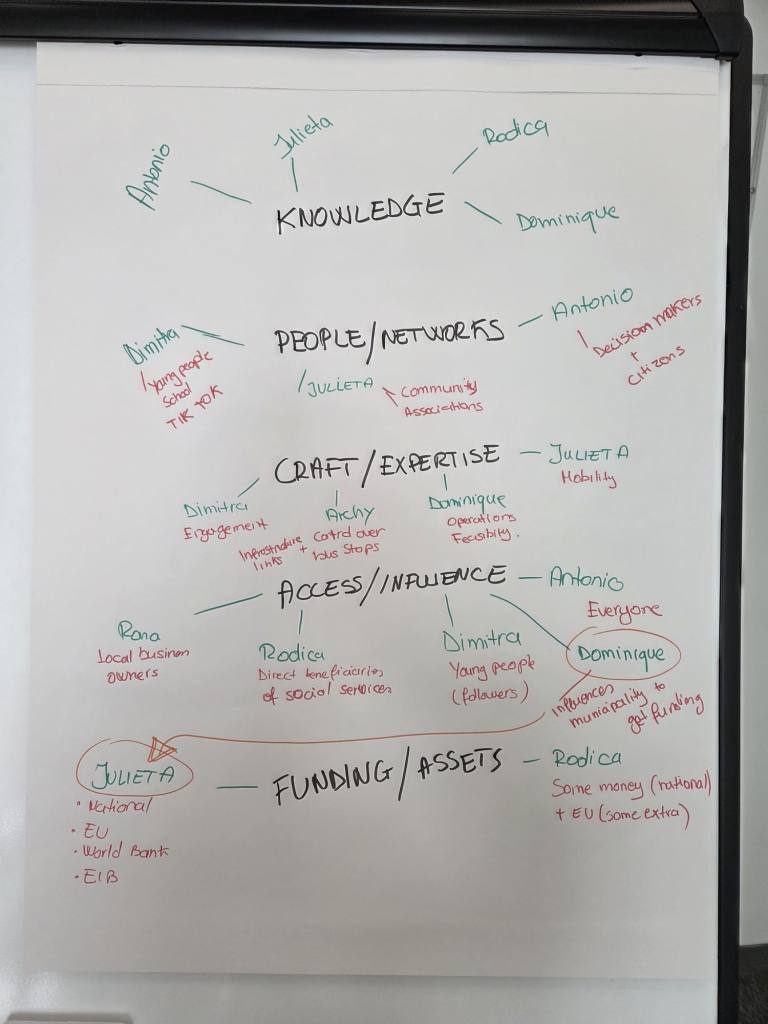 Antonio
Julieta
Rodica
KNOWLEDGE
Dominique
Dimitra
Young people
School
TIK TOK
PEOPLE/NETWORKS
Antonio
Decision makers
+
citizens
JULIETA
Community
Associations
CRAFT/EXPERTISE
JULIETA
Mobility
Dimitra
Engagement
Archy
links +
bus stops
Dominique
Operations
ACCESS/INFLUENCE
Antonio
Everyone
Rana
Local business
owners
Rodica
Direct beneficiaries
of social services
Dimitra
Young people
(followers)
Dominique
Influences
municipality to
get funding
JULIETA
• National
• EU
• World Bank
• EIB
FUNDING/ASSETS
Rodica
Some money (national)
+ EU (some extra)